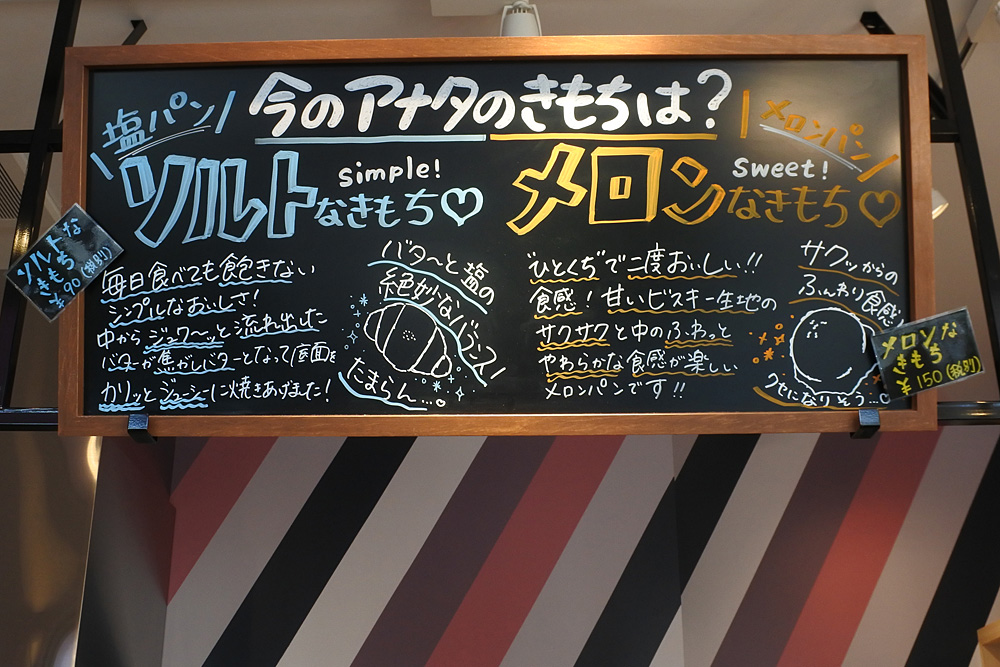 今のアナタのきもちは?
\塩パン/
ソルト
simple!
なきもち♡
\メロンパン/
メロン
sweet!
なきもち♡
ソルトな
きもち
¥90(税別)
毎日食べても飽きない
シンプルなおいしさ!
中からジュワ〜ッと流れ出した
バターが焦がしバターとなって底面を
カリッとジューシーに焼きあげました!
バタ〜と塩の
絶妙なバランス!
たまらん...
"ひとくち"で二度おいしい!!
食感!甘いビスキー生地の
サクサクと中のふわっと
やわらかな食感が楽しい
メロンパンです!!
サクッからの
ふんわり食感
クセになりそう...
メロンな
きもち
¥150(税別)